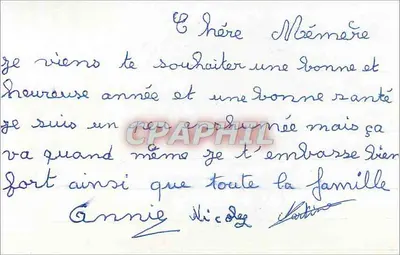 Chère Mémère
je viens te souhaiter une bonne et
heureuse année et une bonne santé
je suis un peu enrhumée mais ça
va quand même je t'embrasse bien
fort ainsi que toute la famille
Annie Nicole
CPAPHIL